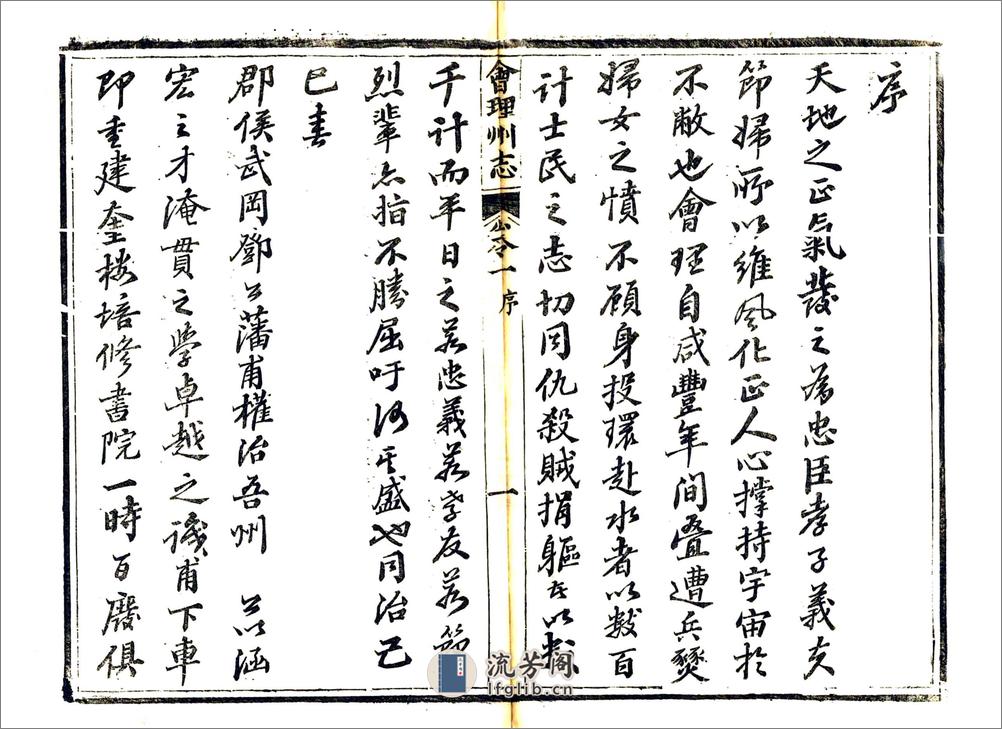 序
天地之正氣發之為忠臣孝子義夫
節婦所以維風化正人心撐持宇宙於
不敝也會理自咸豐年間叠遭兵燹
婦女之憤不顧身投環赴水者以數百
計士民之志切同仇殺賊捐軀者以數
會理州志
序
一
千計而平日之若忠義若孝友若節
烈輩亦指不勝屈吁何其盛也同治己
巳春
郡侯武岡鄧公藩甫權治吾州 公以涵
宏之才淹貫之學卓越之識甫下車
即重建奎樓培修書院一時百廢俱
流芳阁
lfglib.cn